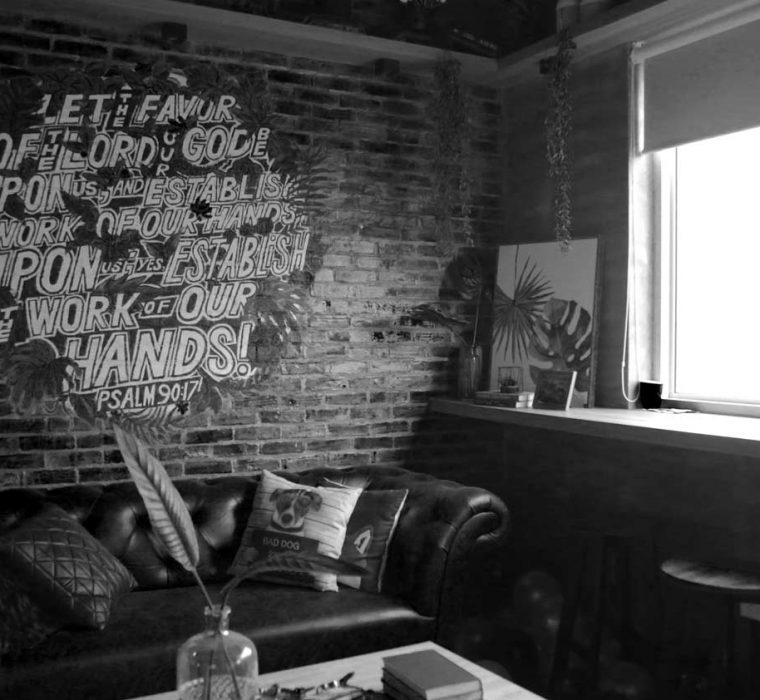 LET THE FAVOR
OF THE LORD OUR GOD BE
UPON US, AND ESTABLISH
WORK OF OUR HANDS,
UPON US; YES, ESTABLISH
THE WORK OF OUR
HANDS!
PSALM 90:17
BAD DOG